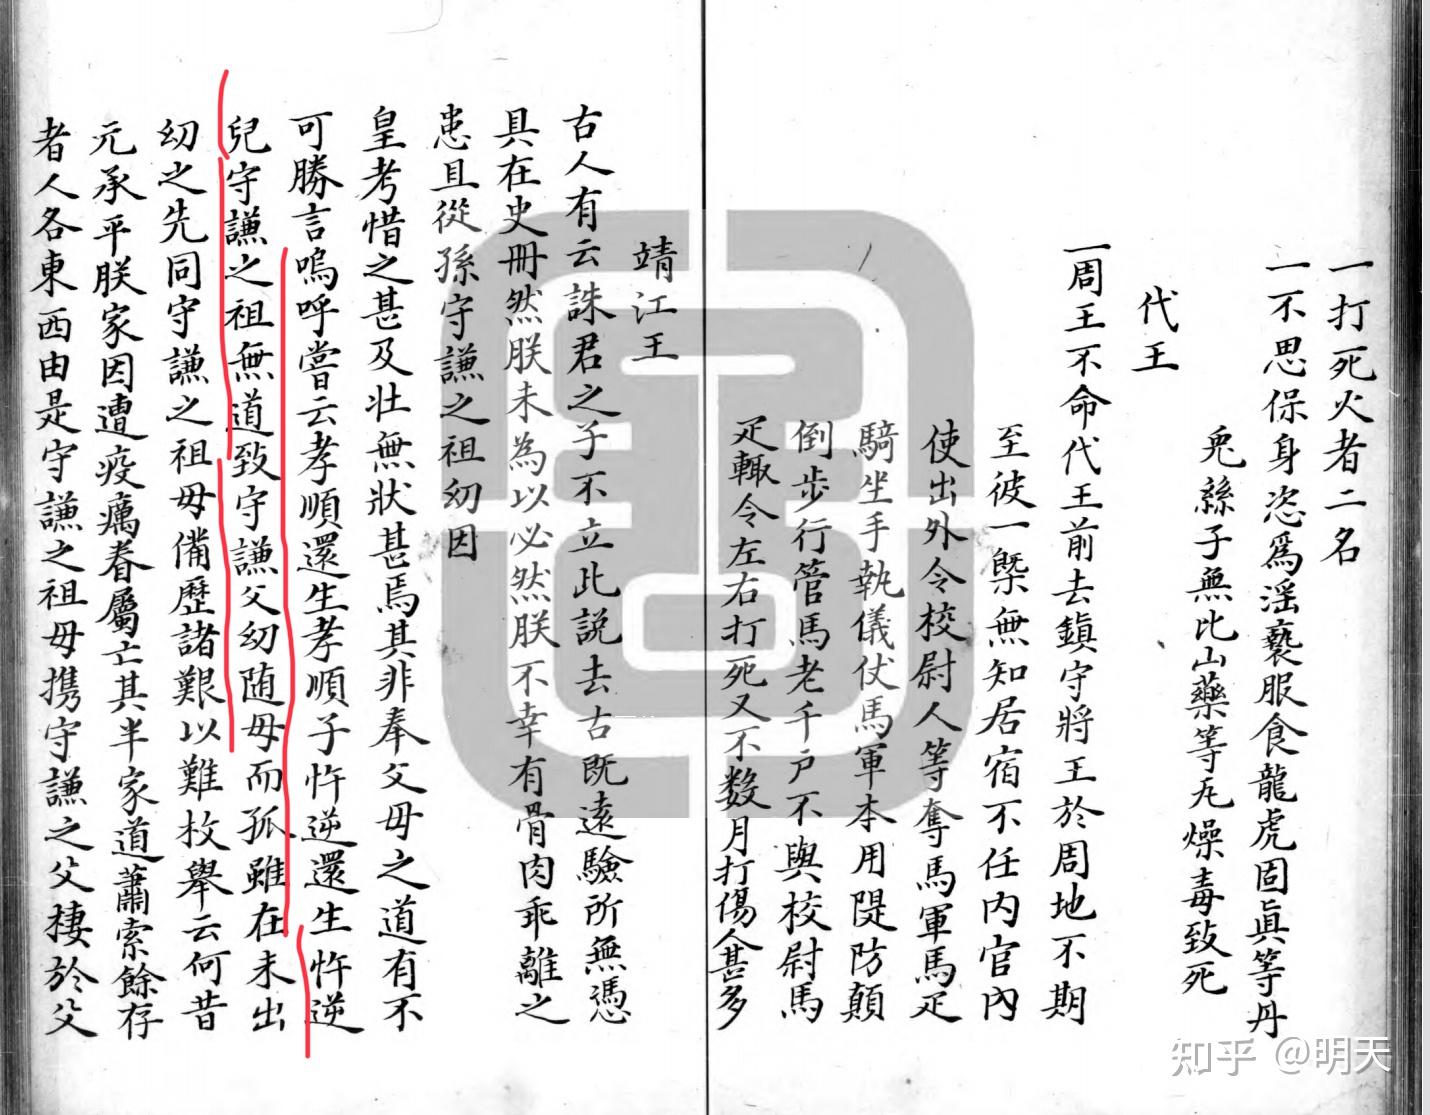 一打死火者二名
一不思保身恣爲淫褻服食龍虎固眞等丹
兎絲子無比山藥等丸燥毒致死
代王
一周王不命代王前去鎮守將王於周地不期
至彼一槩無知居宿不任內官內
使出外令校尉人等奪馬軍馬疋
騎坐手執儀仗馬軍本用隄防顛
倒步行管馬老千戶不與校尉馬
疋輙令左右打死又不数月打傷人甚多
靖江王
古人有云誅君之子不立此説去古既遠驗所無憑
具在史冊然朕未為以必然朕不幸有骨肉乖離之
患且從孫守謙之祖幼因
皇考惜之甚及壯無狀甚焉其非奉父母之道有不
可勝言嗚呼嘗云孝順還生孝順子忤逆還生忤逆
兒守謙之祖無道致守謙父幼随母而孤雖在未出
幼之先同守謙之祖母備歷諸艱以難枚舉云何昔
元承平朕家因遭疫癘眷屬亡其半家道蕭索餘存
者人各東西由是守謙之祖母携守謙之父棲於父
知乎 @明天